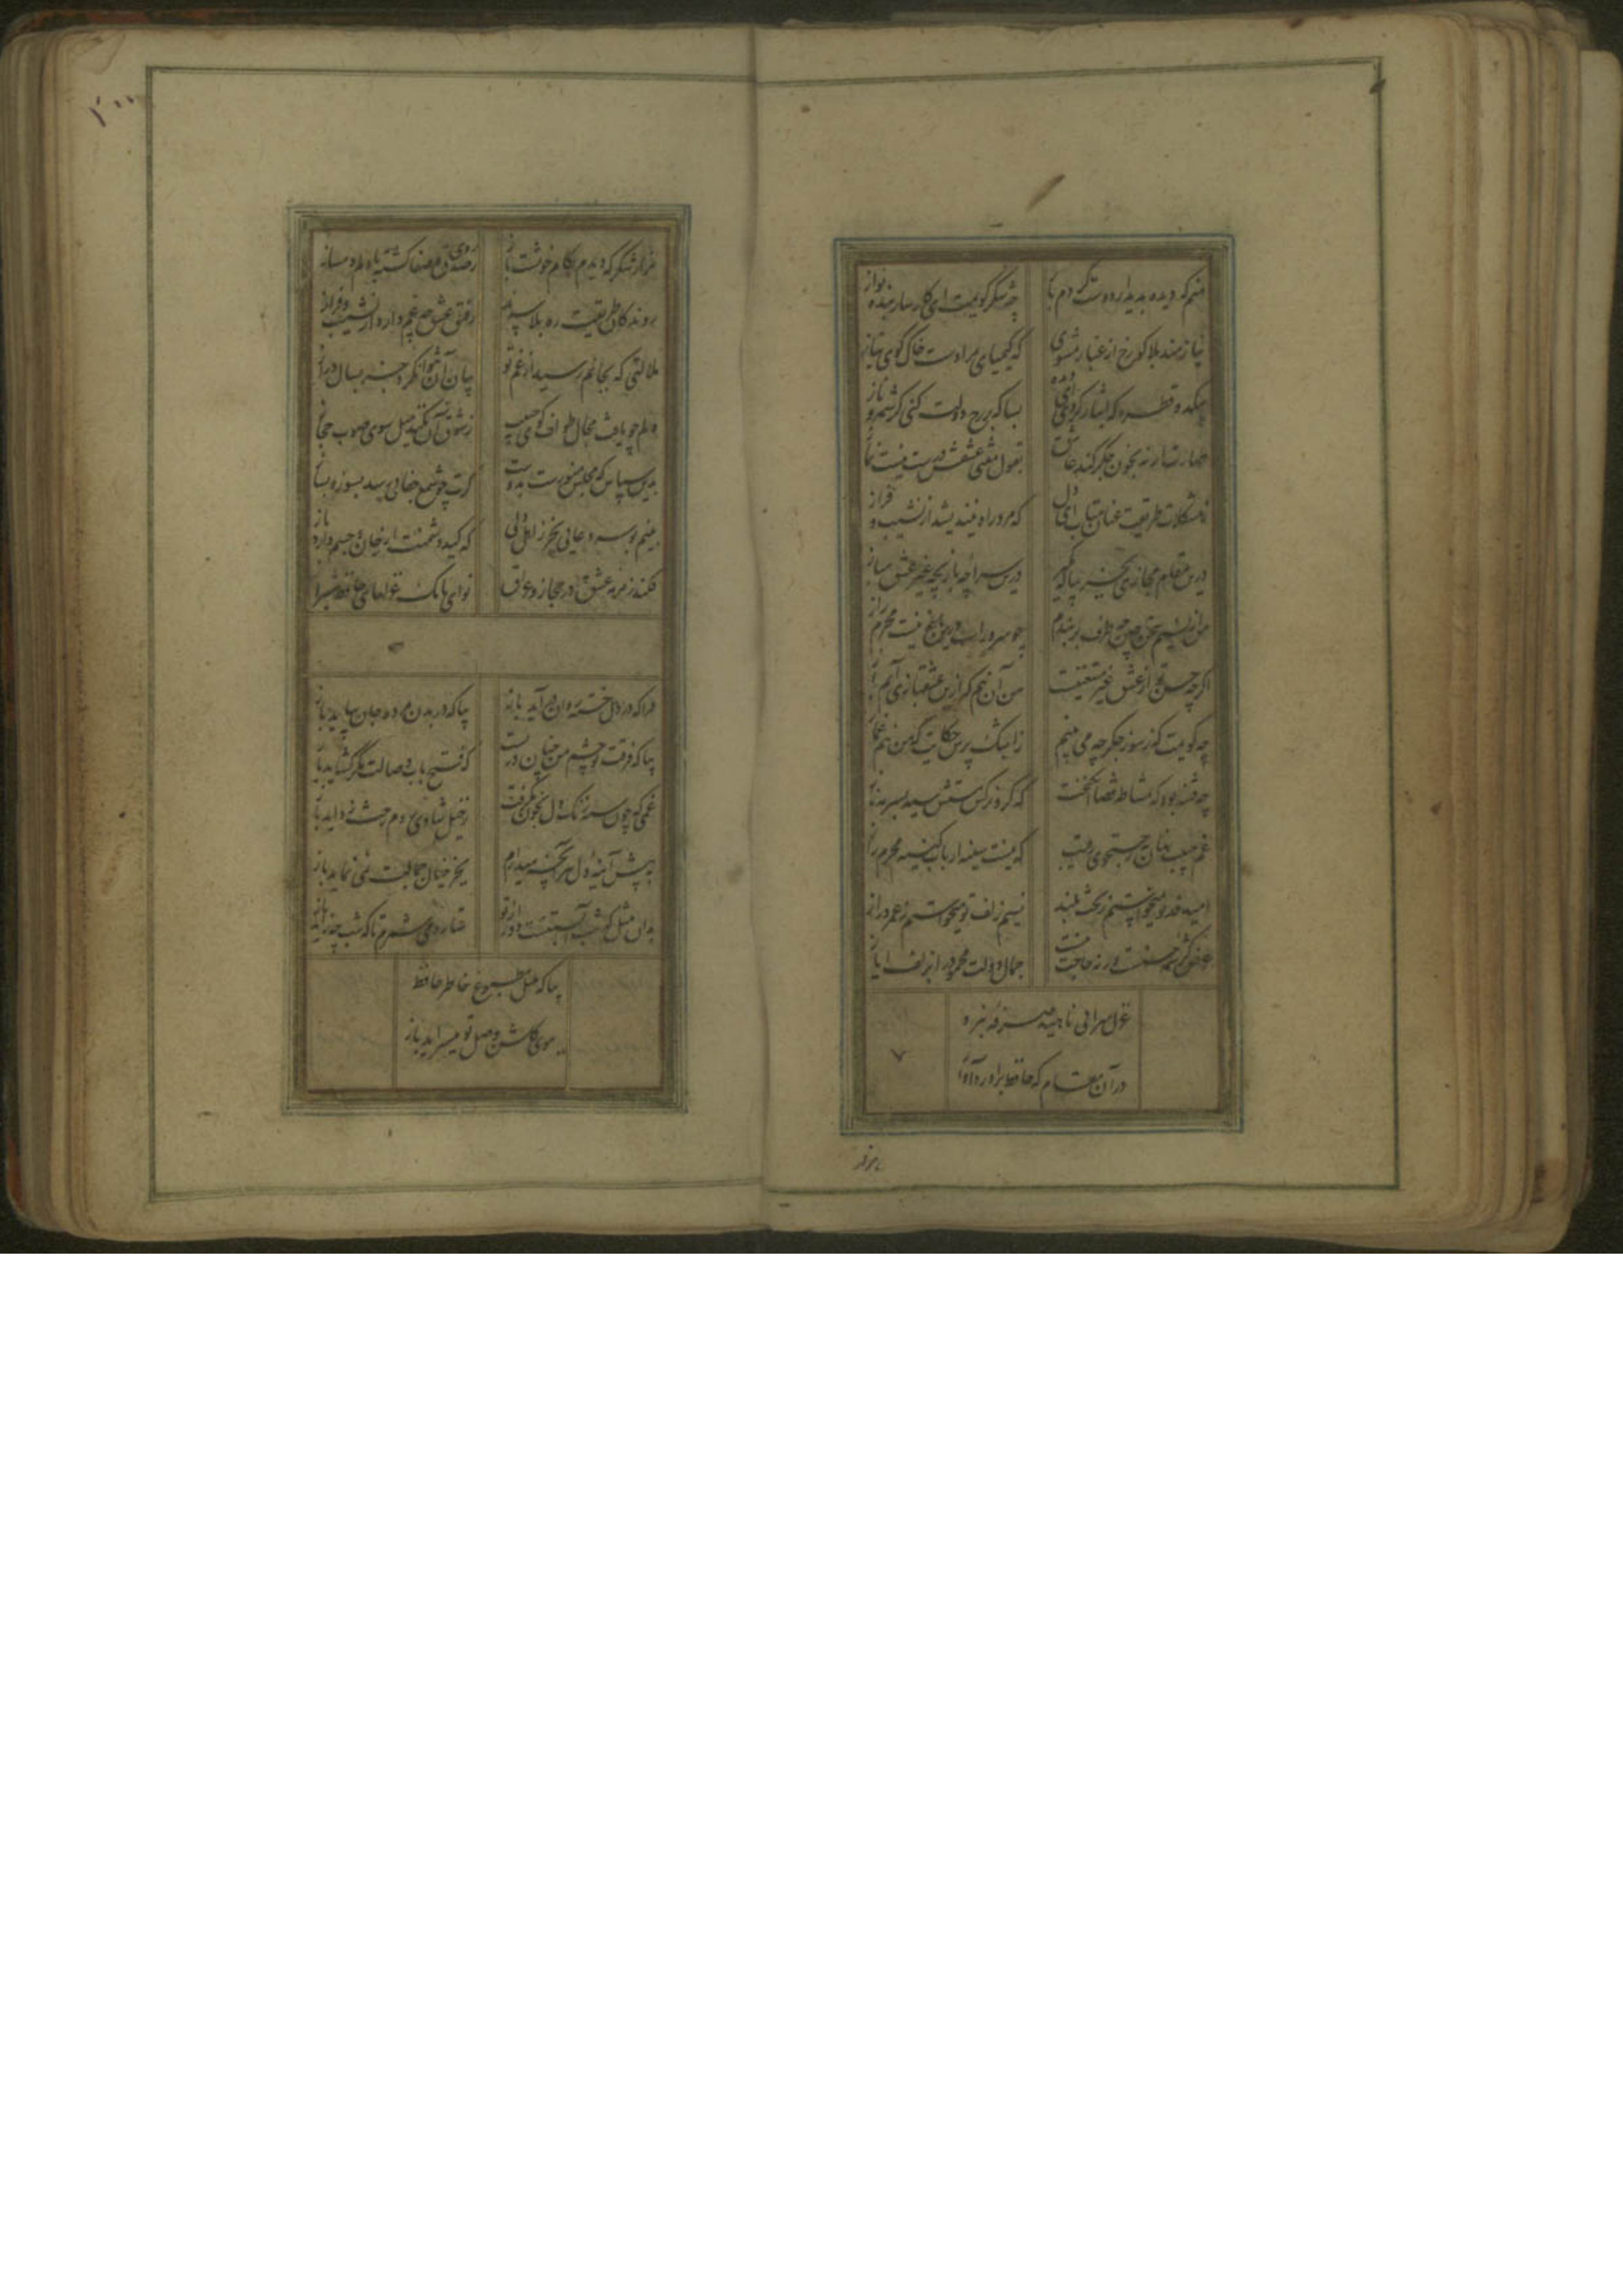 منم که دیده بدیدار دوست کردم باز چه شکر گویمت ای کارساز بنده نواز
نیازمند بلا گو رخ از غبار مشوی که کیمیای مرادست خاک کوی نیاز
بیکدو قطره که ایثار کردی ای دیده بسا که بر رخ دولت کنی کرشمه و ناز
طهارت ار نه بخون جگر کند عاشق بقول مفتی عشقش درست نیست نماز
ز مشکلات طریقت عنان متاب ای دل که مرد راه نیندیشد از نشیب و فراز
درین مقام مجازی بجز پیاله مگیر درین سراچه بازیچه غیر عشق مباز
من از نسیم سخن چین چه طرف بربندم چو سرو راست درین باغ نیست محرم راز
اگرچه حسن تو از عشق غیر مستغنیست من آن نیم که ازین عشقبازی آیم باز
چه گویمت که ز سوز جگر چه می بینم ز اشک پرس حکایت که من نیم غماز
چه فتنه بود که مشاطه قضا انگیخت که کرد نرگس مستش سیه بسرمه ناز
غم حبیب نهان به ز جستجوی رقیب که نیست سینه ارباب کینه محرم راز
امید قد تو میخواستم ز بخت بلند نسیم زلف تو میخواستم ز عمر دراز
غرض کرشمه حسنست ورنه حاجت نیست جمال دولت محمود را بزلف ایاز
غزل سرائی ناهید صرفه نبرد
در آن مقام که حافظ برآورد آواز
هزار
۲۰۰
هزار شکر که دیدم بکام خویشت باز ز روی صدق و صفا گشته با دلم دمساز
روندگان طریقت ره بلا سپرند رفیق عشق چه غم دارد از نشیب و فراز
ملالتی که بجانم رسید از غم تو بیان آن نتوان کرد جز بسال دراز
دلم چو یافت مجال طواف کوی حبیب ز شوق آن نکند میل سوی صوب حجاز
بدین سپاس که مجلس منورست بدوست گرت چو شمع جفائی رسد بسوز و بساز
به نیم بوسه دعائی بخر ز اهل دلی که کید دشمنت از جان و جسم دارد باز
فکند زمزمه عشق در حجاز و عراق نوای بانک غزلهای حافظ شیراز
درآ که در دل خسته توان درآید باز بیا که در بدن مرده جان بیاید باز
بیا که فرقت تو چشم من چنان دربست که فتح باب وصالت مگر گشاید باز
غمی که چون سپه زنگ دل بخون بگرفت ز خیل شادی روم رخت زداید باز
به پیش آینه دل هر آنچه میدارم بجز خیال جمالت نمی نماید باز
بدان مثل که شب آبستنست دور از تو ستاره می شمرم تا که شب چه زاید باز
بیا که بلبل مطبوع خاطر حافظ
ببوی گلشن وصل تو میسراید باز